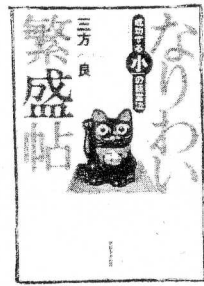 なりわい
繁盛帖
成功する小の経営法
三方 良